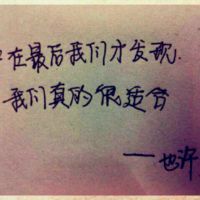 在最后我们才发现.
我们真的很适合
——也许